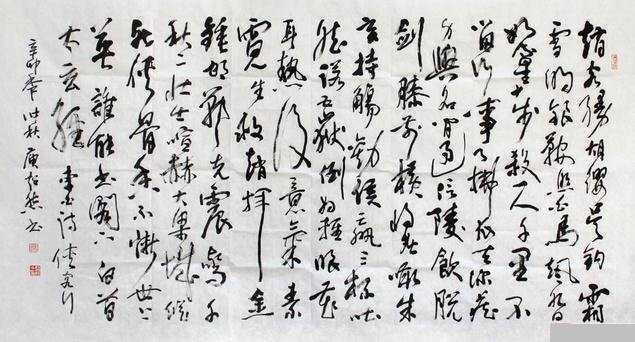 趙客縵胡纓吳鉤霜
雪明銀鞍照白馬颯沓
如流星十步殺一人千里不
留行事了拂衣去深藏
身與名閒過信陵飲脫
劍膝前橫將炙啖朱
亥持觴勸侯嬴三杯吐
然諾五嶽倒為輕眼花
耳熱後意氣素
霓生救趙揮金
錘邯鄲先震驚千
秋二壯士喧赫大梁城縱
死俠骨香不慚世上
英誰能書閣下白首
太玄經 李白詩俠客行
辛卯年 時秋 書